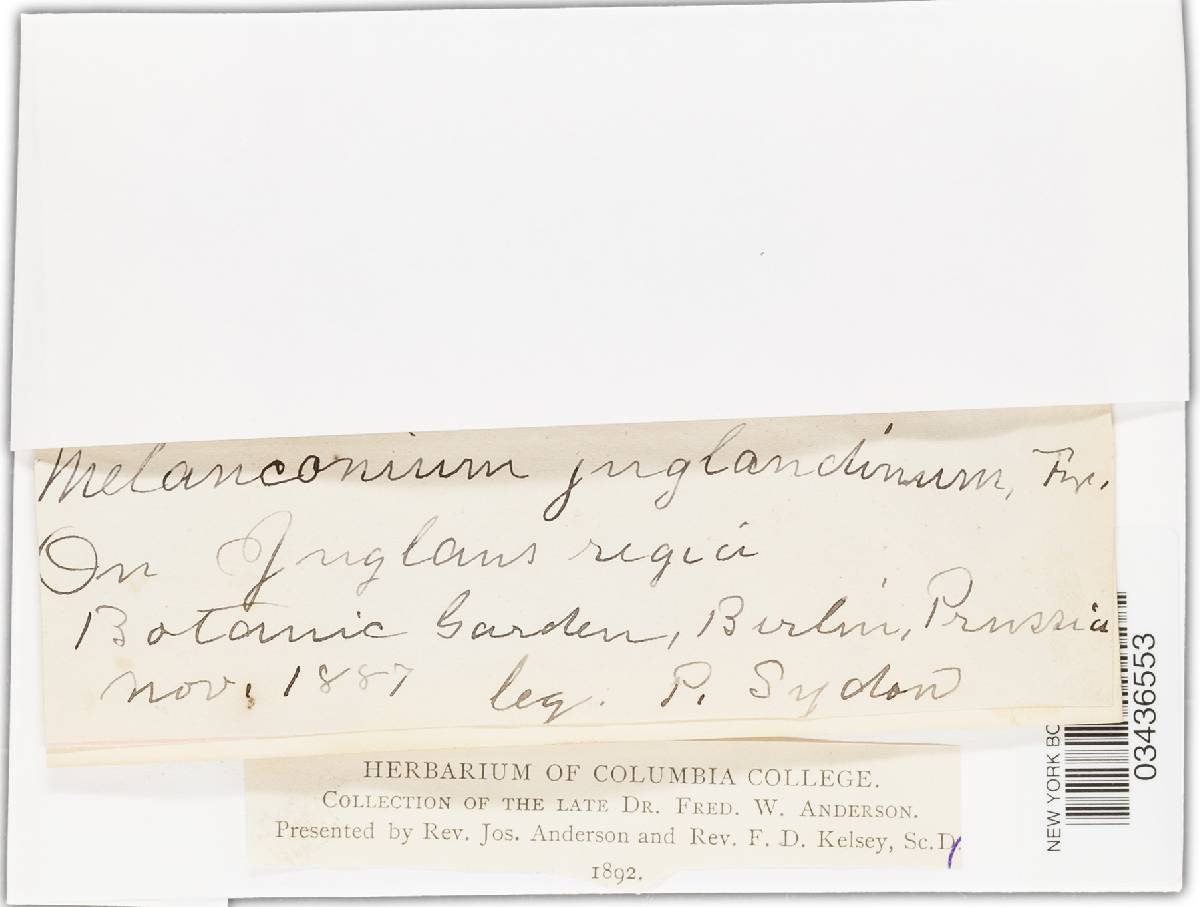 Melanconium juglandinum, Fr.
On Juglans regia
Botanic Garden, Berlin, Prussia
Nov. 1887 leg. P. Sydow
HERBARIUM OF COLUMBIA COLLEGE.
COLLECTION OF THE LATE DR. FRED. W. ANDERSON.
Presented by Rev. Jos. Anderson and Rev. F. D. Kelsey, Sc.D.
1892.
NEW YORK BO
03436553